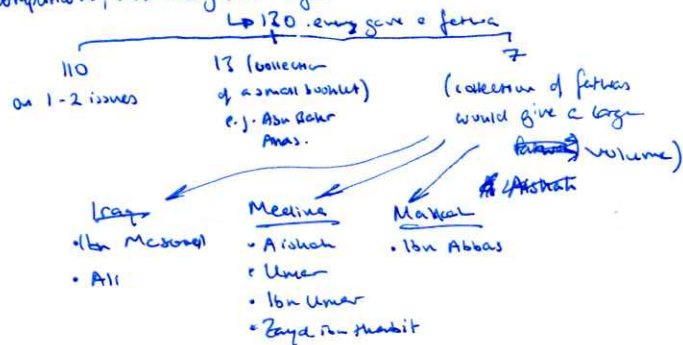 ↳ 130 every gave a fatwa
110
on 1-2 issues
13 (collection
of a small booklet)
e.g. Abu Bakr
Anas.
7
(collection of fatwas
would give a large
volume)
Iraq
• Ibn Mesoud
• Ali
Medina
• Aishah
• Umar
• Ibn Umar
• Zayd ibn thabit
Makkah
• Ibn Abbas